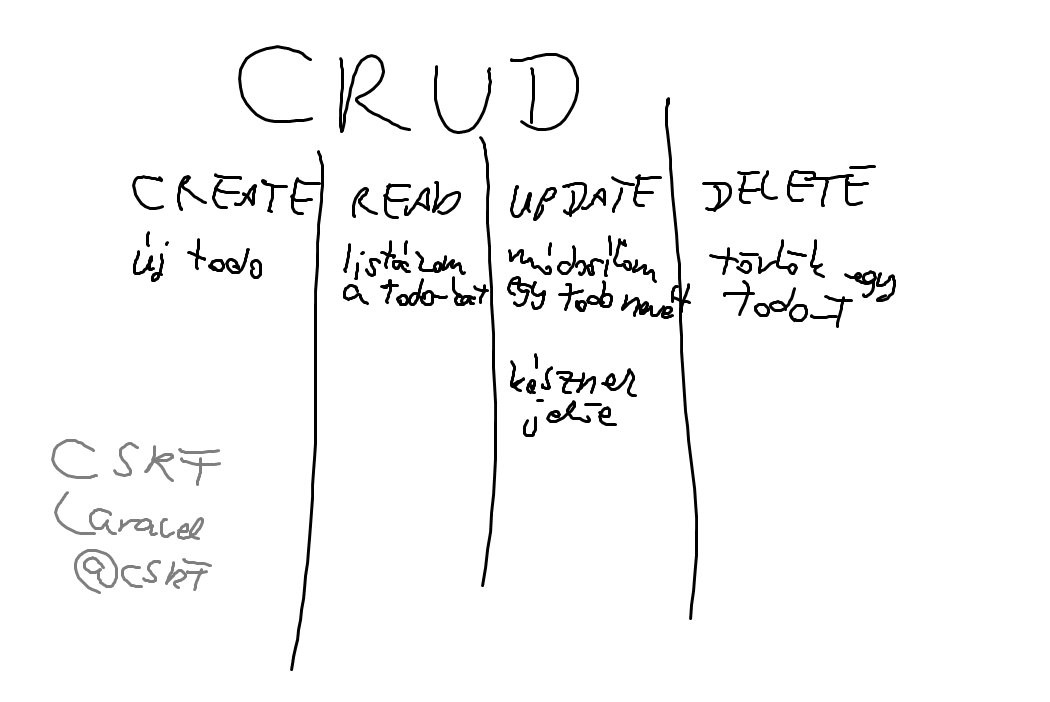 CRUD
CREATE
új todo
READ
listázom
a todo-kat
UPDATE
módosítom
egy todo nevét
késznek
jelöl
DELETE
törlök egy
todo-T
CSRF
Laravel
@CSRF